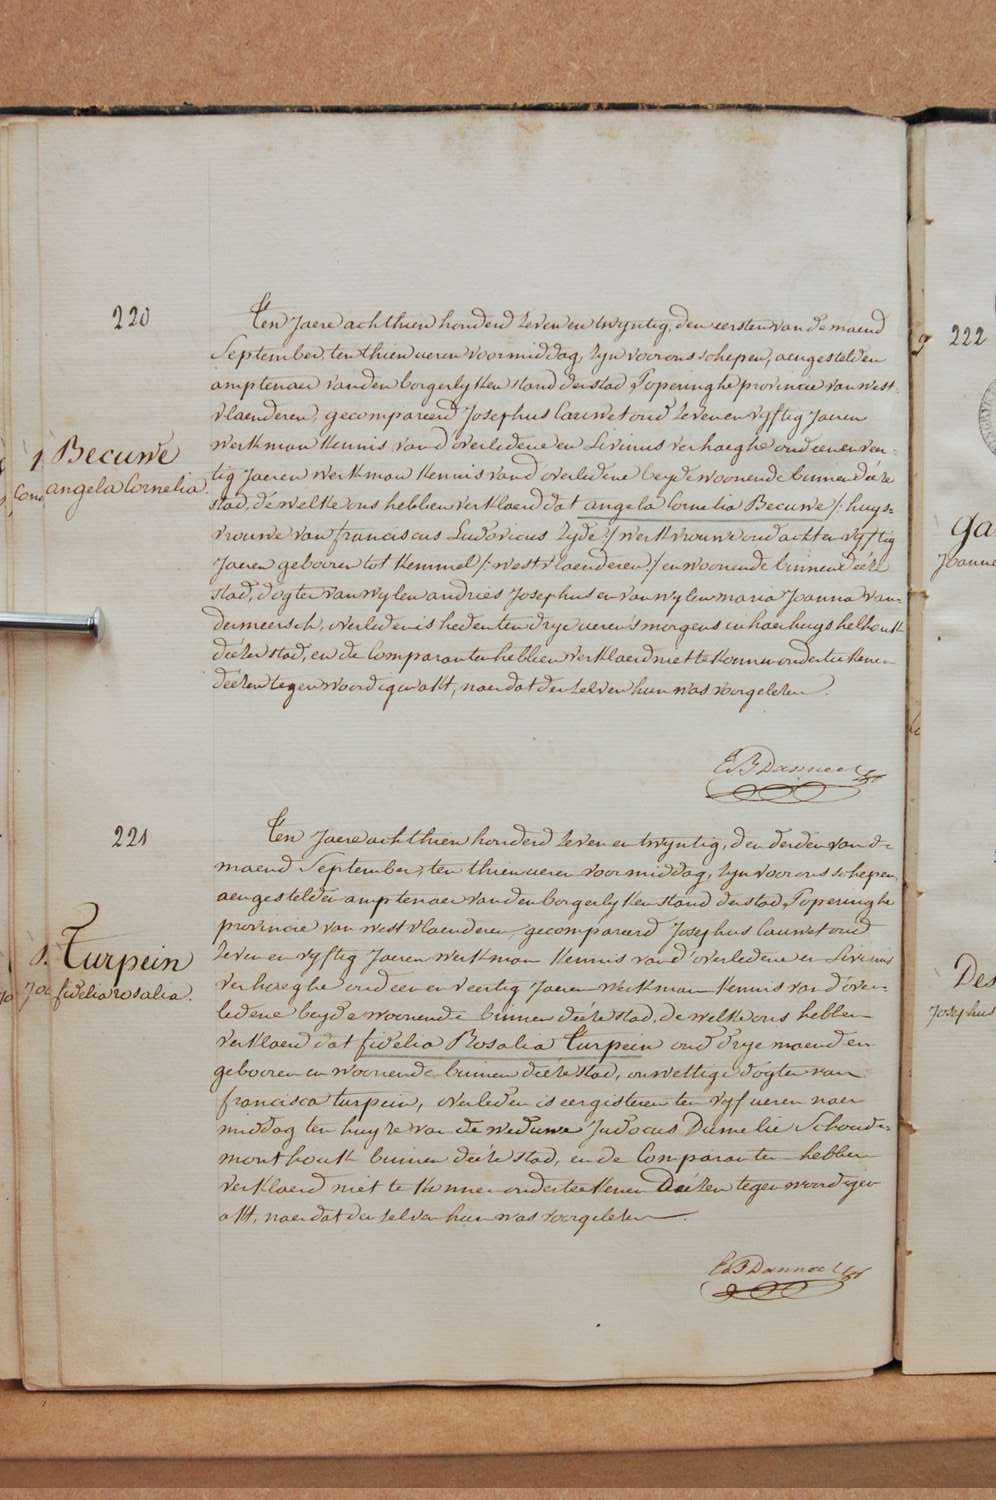 220
Ten Jaere achthien honderd zeven en twyntig, den eersten van de maend
September, ten thien ueren voormiddag, zyn voor ons schepen, aengestelden
amptenaer van den borgerlyken stand der stad Poperinghe provincie van west-
vlaenderen, gecompareerd Josephus Cauwet oud zeven en vyftig Jaeren
werkman kennis van d'overledene en Livinus verhaeghe oud een en veer-
tig Jaeren werkman kennis van d'overledene beyde woonende binnen déeze
stad, de welke ons hebben verklaerd dat angela Cornelia Becuwe /: huys-
vrouwe van franciscus Ludovicus Lyde :/ werkvrouwe oud acht en vyftig
Jaeren gebooren tot Kemmel /: west vlaenderen :/ en woonende binnen déeze
stad, dogter van wylen andries Josephus en van wylen maria Joanna van-
dermeersch, overleden is heden ten drye ueren 's morgens in haer huys helhoutk
déezer stad, en de Comparanten hebben verklaerd niet te konnen onderteekenen
déezen tegenwoordigen akt, naer dat der zelven hun was voorgelezen.
Becuwe
angela Cornelia.
221
Ten Jaere achthien honderd zeven en twyntig, den derden van de
maend September, ten thien ueren voormiddag, zyn voor ons schepen,
aengestelden amptenaer van den borgerlyken stand der stad Poperinghe
provincie van west vlaenderen, gecompareerd Josephus Cauwet oud
zeven en vyftig Jaeren werkman kennis van d'overledene en Livinus
Verhaeghe oud een en veertig Jaeren werkman kennis van d'over-
ledene beyde woonende binnen déeze stad, de welke ons hebben
verklaerd dat fidelia Rosalia Turpein oud drye maenden
gebooren en woonende binnen déeze stad, onwettige dogter van
francisca turpein, overleden is eergisteren ten vyf ueren naer
middag ten huyze van de weduwe Judocus Dumelie Schoude-
mont houtk binnen déeze stad, en de Comparanten hebben
verklaerd niet te konnen onderteekenen déezen tegenwoordigen
akt, naer dat der zelven hun was voorgelezen.
Turpein
fidelia rosalia.
222